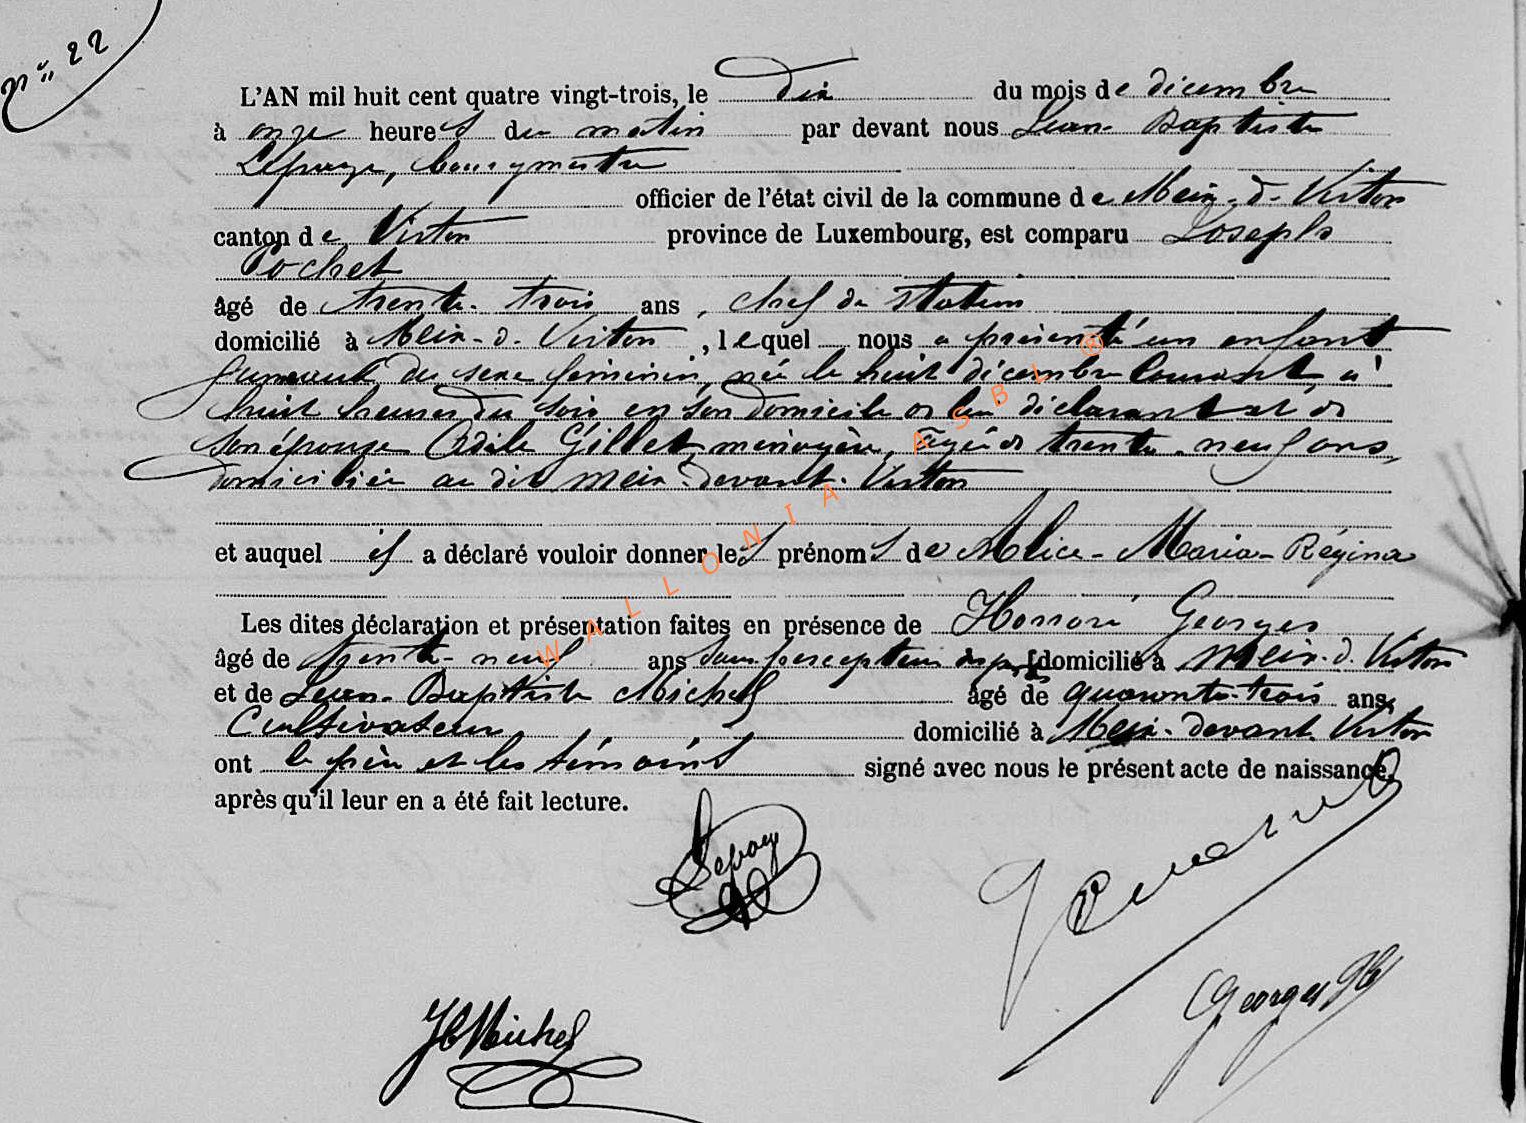 n° 22
L'AN mil huit cent quatre vingt-trois, le dix du mois de décembre
à onze heures du matin par devant nous Jean-Baptiste
Lepage, bourgmestre
officier de l'état civil de la commune de Meix-d-Virton
canton de Virton province de Luxembourg, est comparu Joseph
Pochet
âgé de trente-trois ans, chef de station
domicilié à Meix-d-Virton, lequel nous a présenté un enfant
du sexe féminin, née le huit décembre courant, à
huit heures du soir en son domicile de lui déclarant et de
son épouse Odile Gillet, ménagère, âgée de trente-neuf ans,
domiciliée au dit Meix-devant-Virton
et auquel il a déclaré vouloir donner les prénoms de Alice-Maria-Régina
Les dites déclaration et présentation faites en présence de Honoré Georges
âgé de trente-neuf ans domicilié à Meix-d-Virton
et de Jean-Baptiste Michel âgé de quarante-trois ans,
Cultivateur domicilié à Meix-devant-Virton
ont le père et les témoins signé avec nous le présent acte de naissance,
après qu'il leur en a été fait lecture.
Lepage
JB Michel
Georges H
WALLONIA ASBL ®